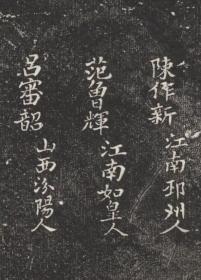 陳作新 江南邳州人
范曾輝 江南如皋人
呂審韶 山西汾陽人